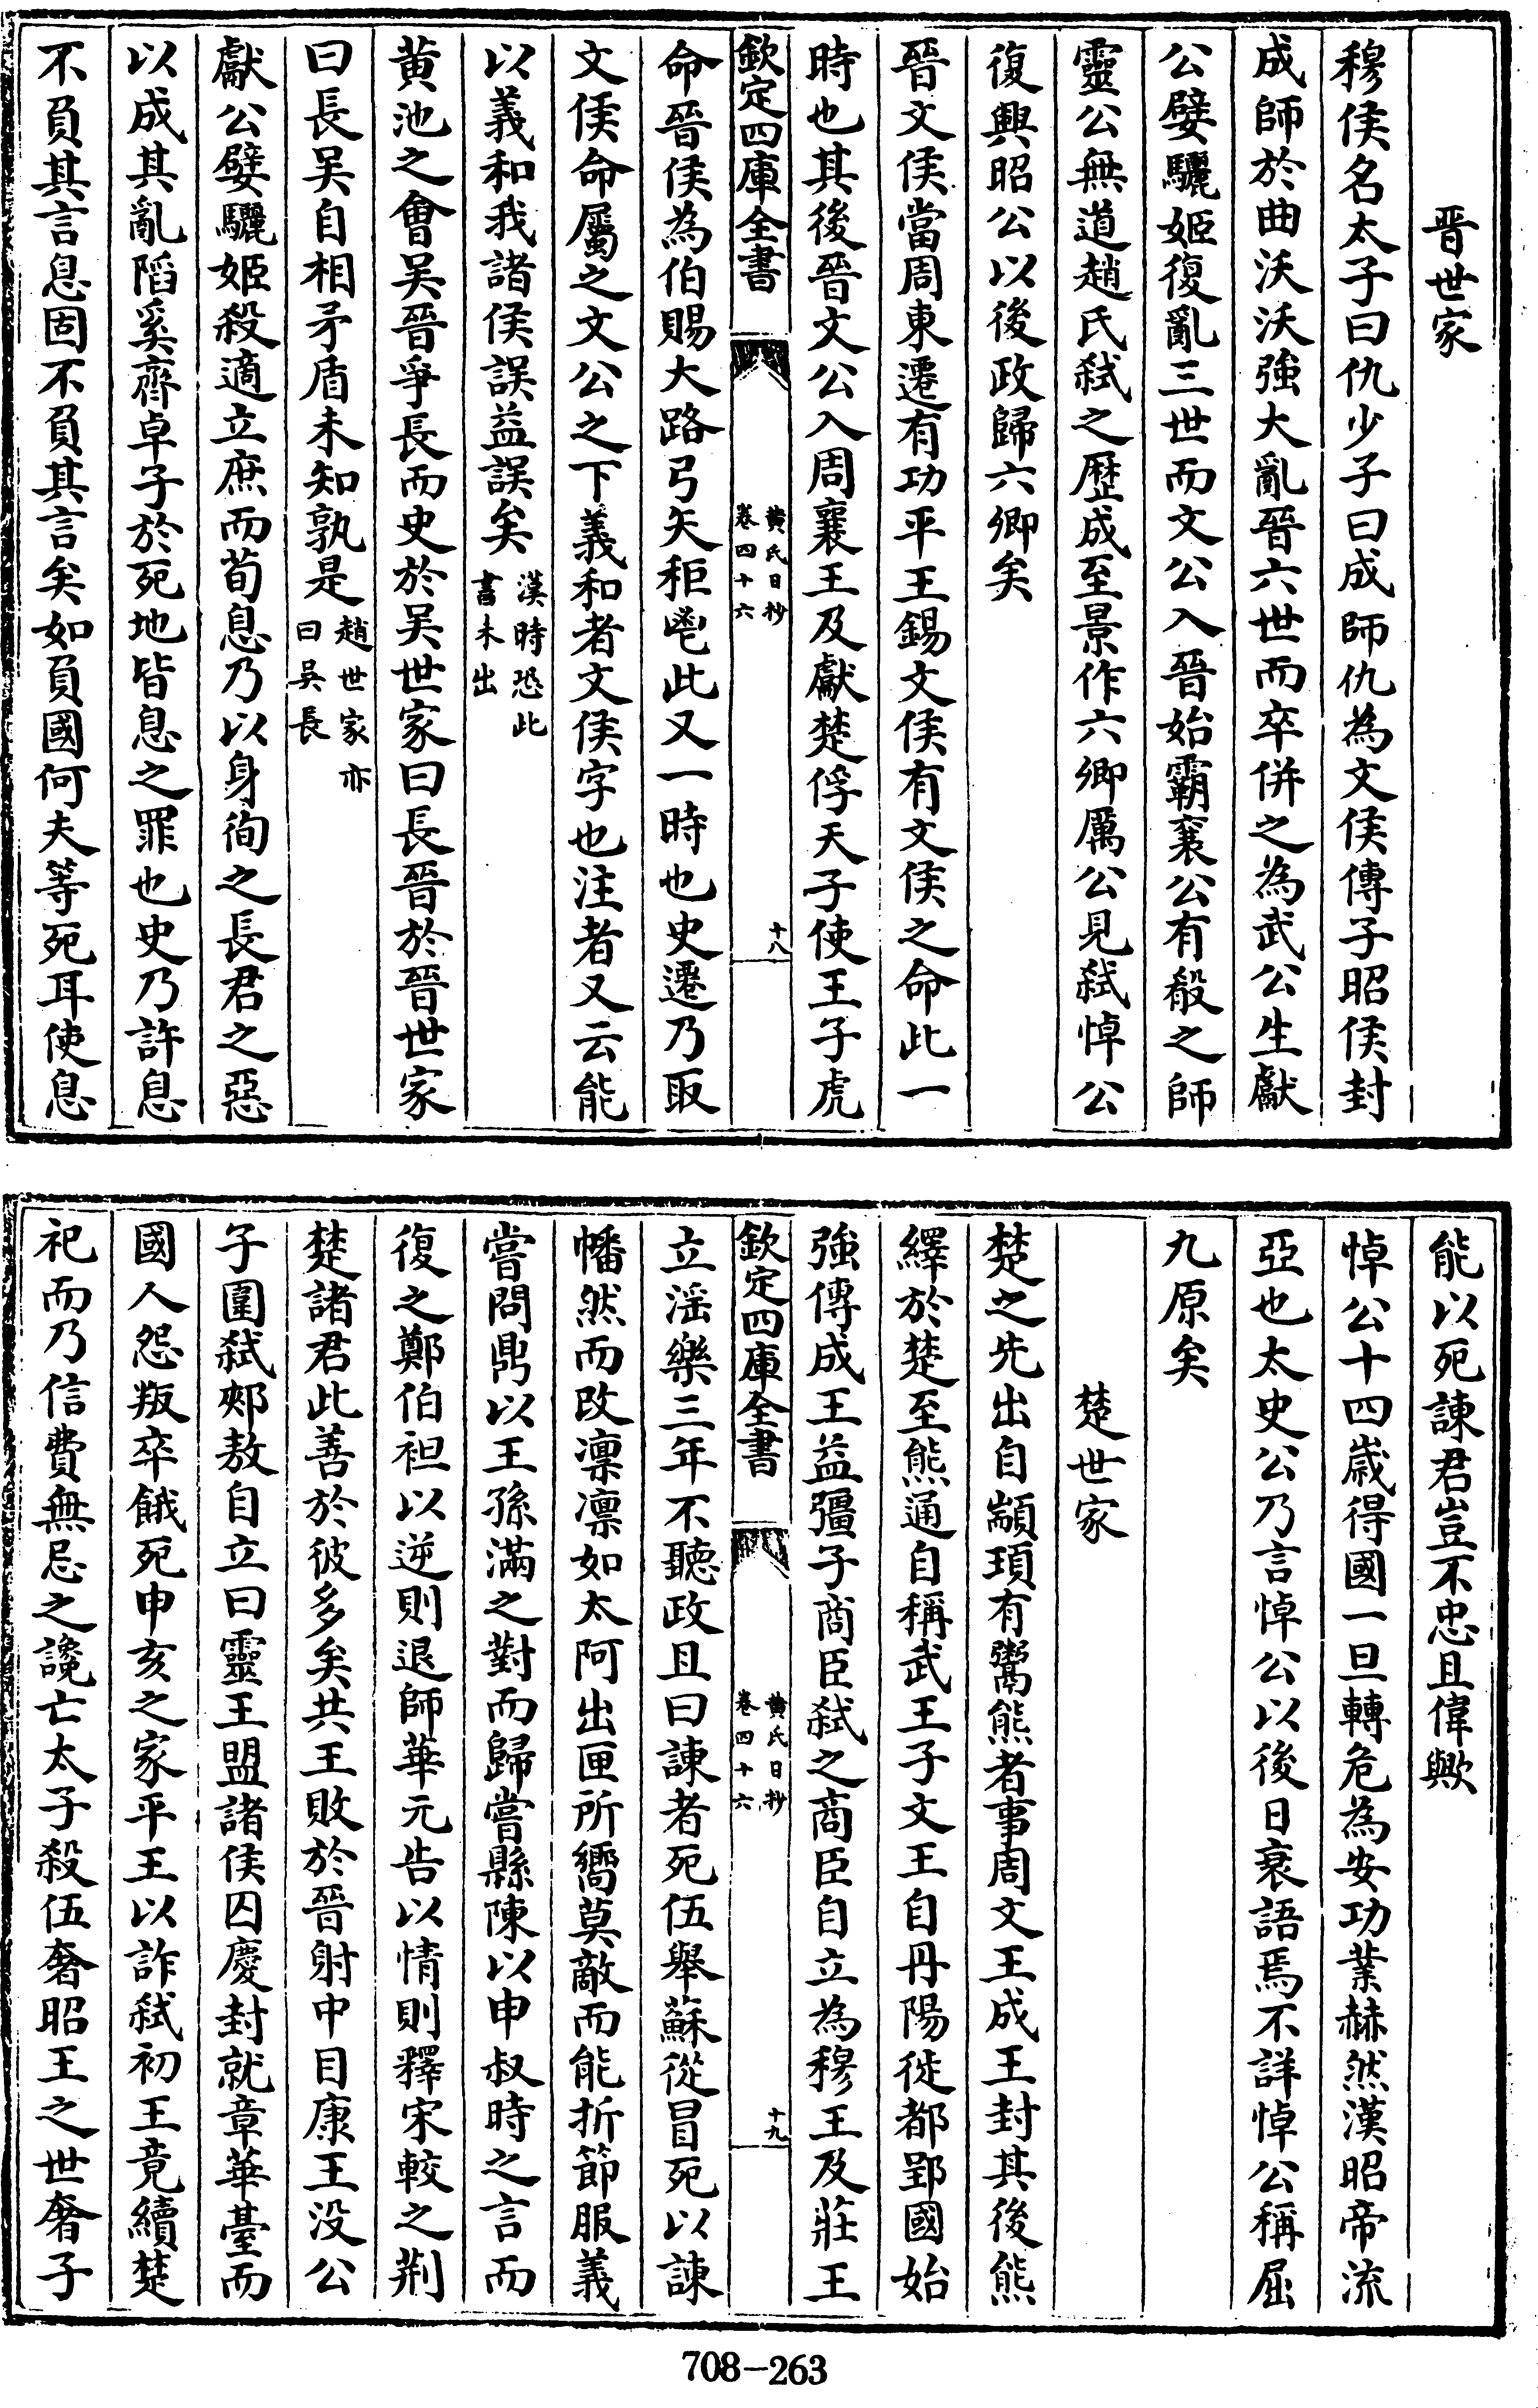 晋世家
穆侯名太子曰仇少子曰成師仇為文侯傳子昭侯封
成師於曲沃沃強大亂晉六世而卒併之為武公生獻
公嬖驪姬復亂三世而文公入晉始霸襄公有殽之師
靈公無道趙氏弑之歴成至景作六卿厲公見弑悼公
復興昭公以後政歸六卿矣
晉文侯當周東遷有功平王錫文侯有文侯之命此一
時也其後晉文公入周襄王及獻楚俘天子使王子虎
欽定四庫全書
黄氏日抄
卷四十六
十八
命晉侯為伯賜大路弓矢秬鬯此又一時也史遷乃取
文侯命屬之文公之下義和者文侯字也注者又云能
以義和我諸侯誤益誤矣漢時恐此書未出
黄池之會吴晉爭長而史於吴世家曰長晉於晉世家
曰長吴自相矛盾未知孰是趙世家亦曰吴長
獻公嬖驪姬殺適立庶而荀息乃以身徇之長君之惡
以成其亂陷奚齊卓子於死地皆息之罪也史乃許息
不負其言息固不負其言矣如負國何夫等死耳使息
能以死諫君豈不忠且偉歟
悼公十四歳得國一旦轉危為安功業赫然漢昭帝流
亞也太史公乃言悼公以後日衰語焉不詳悼公稱屈
九原矣
楚世家
楚之先出自顓頊有鬻熊者事周文王成王封其後熊
繹於楚至熊通自稱武王子文王自丹陽徙都郢國始
強傳成王益彊子商臣弑之商臣自立為穆王及莊王
欽定四庫全書
黄氏日抄
卷四十六
十九
立滛樂三年不聽政且曰諫者死伍舉蘇從冒死以諫
幡然而改凛凛如太阿出匣所嚮莫敵而能折節服義
嘗問鼎以王孫滿之對而歸嘗縣陳以申叔時之言而
復之鄭伯袒以逆則退師華元告以情則釋宋較之荆
楚諸君此善於彼多矣共王敗於晉射中目康王没公
子圍弑郟敖自立曰靈王盟諸侯囚慶封就章華臺而
國人怨叛卒餓死申亥之家平王以詐弑初王竟續楚
祀而乃信費無忌之讒亡太子殺伍奢昭王之世奢子
708-263